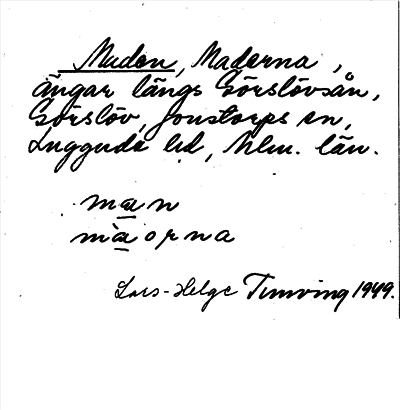 Maden, Maderna,
ängar längs Görslövsån,
Görslöv, Jonstorps sn,
Luggude hd, Mlm. län.
mæn
mæorna
Lars-Helge Tunving 1949.